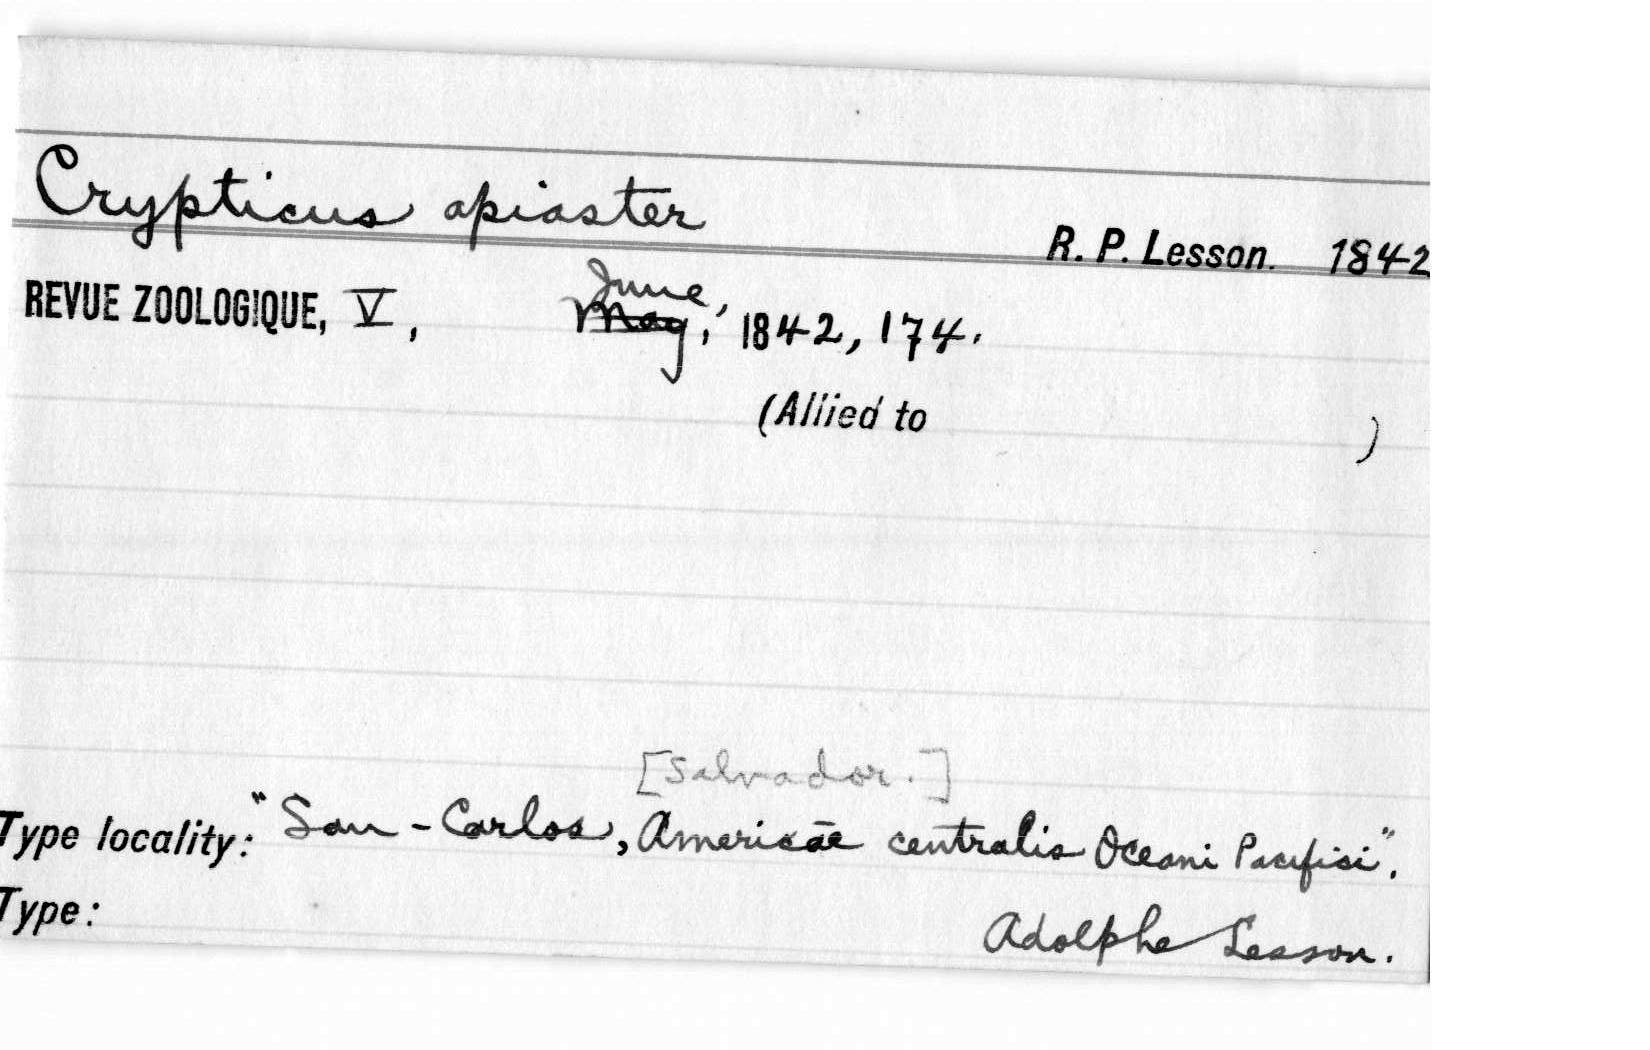 Crypticus apiaster
R. P. Lesson. 1842
June,
REVUE ZOOLOGIQUE, V, May, 1842, 174.
(Allied to )
[Salvador.]
Type locality: "San-Carlos, Americae centralis Oceani Pacifici".
Type: Adolphe Lesson.